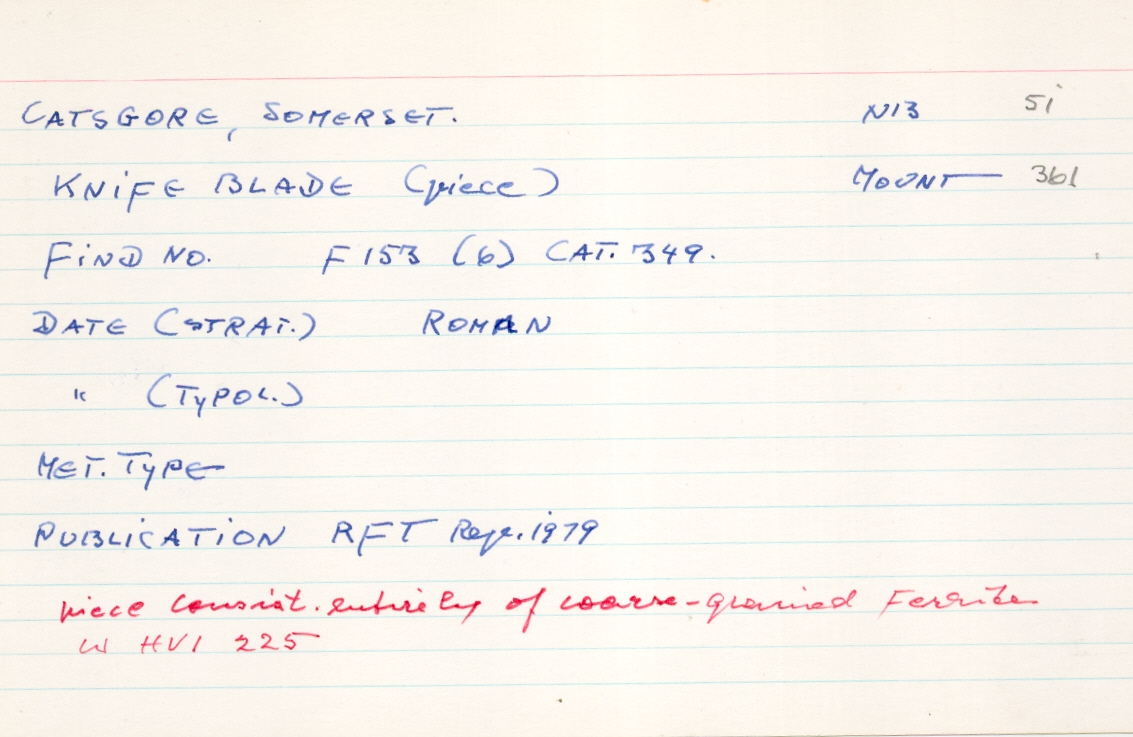 CATSGORE, SOMERSET. NB 51
KNIFE BLADE (piece) MOUNT 361
FIND NO. F 153 (6) CAT. 349.
DATE (STRAT.) ROMAN
" (TYPOL.)
MET. TYPE
PUBLICATION RFT Repr. 1979
piece consist. entirely of coarse-grained Ferrite
W HV1 225